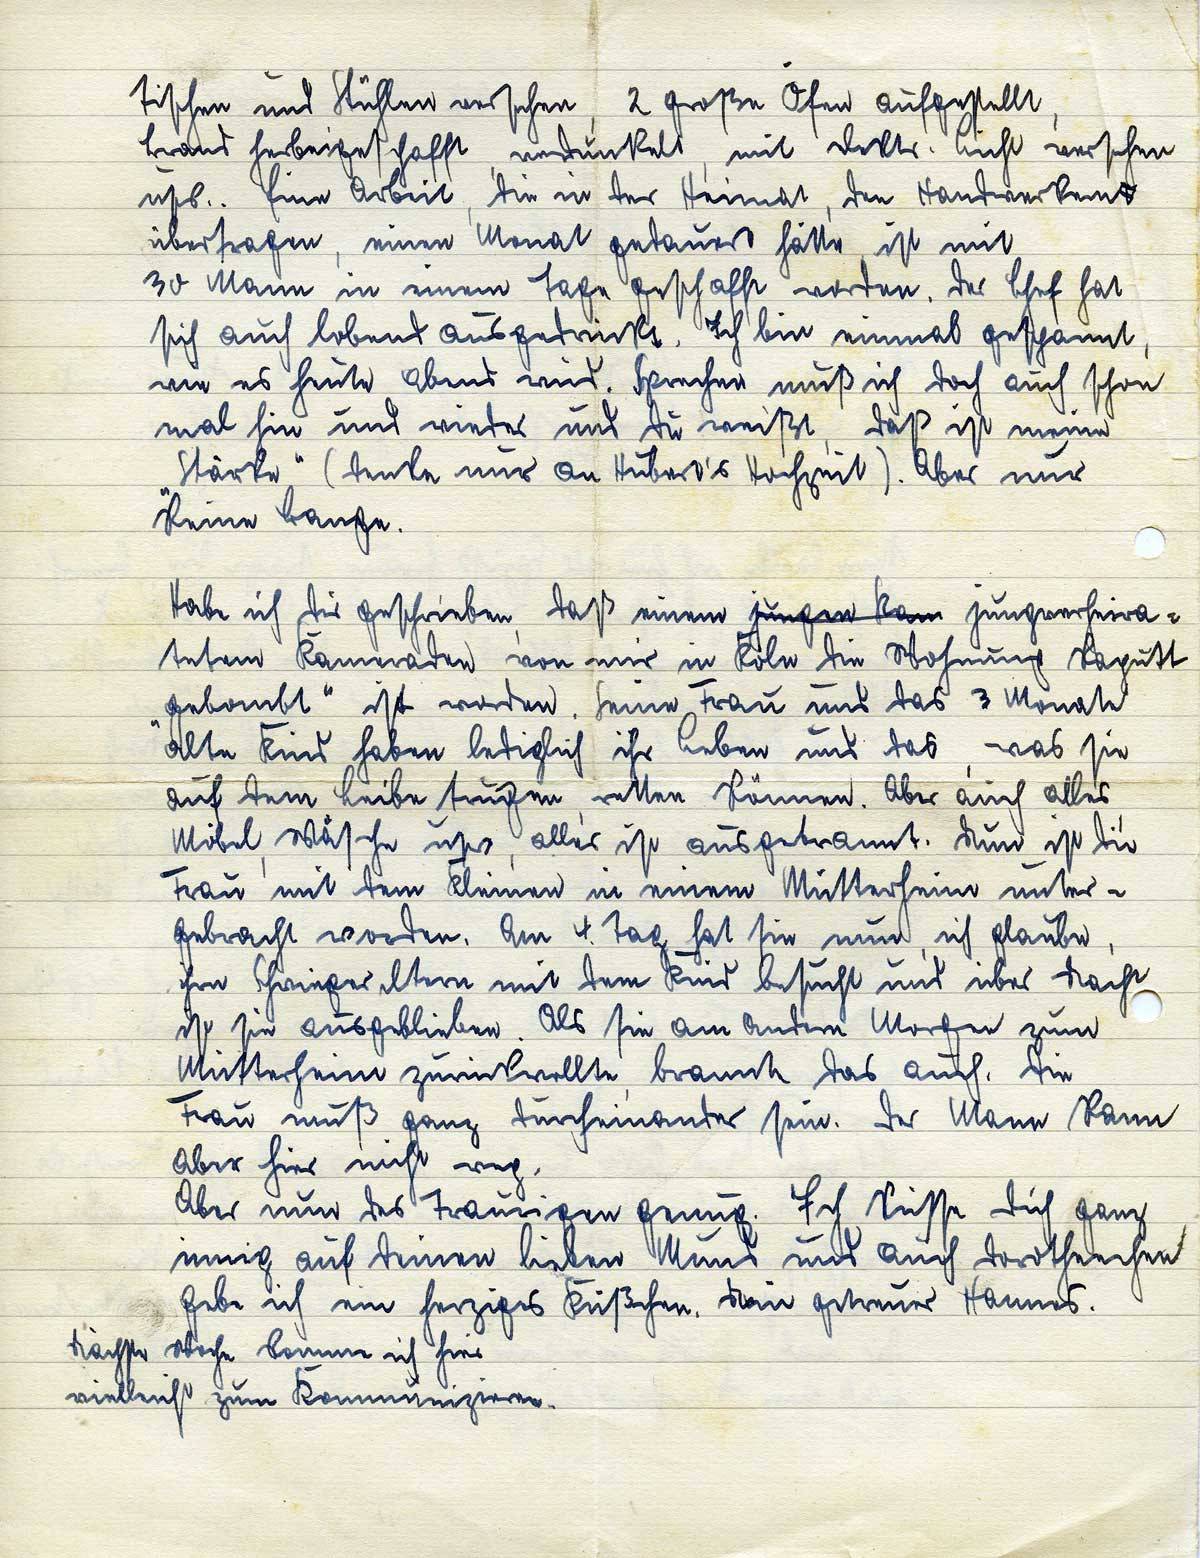 Tischen und Stühlen versehen, 2 große Öfen aufgestellt,
Brand herbeigeschafft, verdunkelt, mit elektr. Licht versehen
usw.. Eine Arbeit, die in der Heimat, den Handwerkern
übertragen, einen Monat gedauert hätte, ist mit
30 Mann in einem Tage geschafft worden. Der Chef hat
sich auch lobend ausgedrückt. Ich bin einmal gespannt,
wie es heute Abend wird. Sprechen muß ich doch auch schon
mal hin und wieder und du weißt, daß ist meine
„Stärke“ (denke nur an Hubert's Hochzeit). Aber nur
keine Bange.

Habe ich dir geschrieben, daß einem jungen Kam jungverheira=
tetem Kameraden von mir in Köln die Wohnung kaputt
„gebombt“ ist worden. Seine Frau und das 3 Monate
alte Kind haben lediglich ihr Leben und das, was sie
auf dem Leibe trugen, retten können. Aber auch alles
Möbel, Wäsche usw, alles ist ausgebrannt. Nun ist die
Frau mit dem Kleinen in einem Mütterheim unter-
gebracht worden. Am 4. Tag hat sie nun, ich glaube,
ihre Schwiegereltern mit dem Kind besucht und über Nacht
ist sie ausgeblieben. Als sie am andern Morgen zum
Mütterheim zurückwollte, brannte das auch. Die
Frau muß ganz durcheinander sein. Der Mann kann
aber hier nicht weg.
Aber nun des Traurigen genug. Ich küsse Dich ganz
innig auf deinen lieben Mund und auch Dorotheechen
gebe ich ein herziges Küßchen. Dein getreuer Hannes.
Nächste Woche komme ich hier
vielleicht zum Kommunizieren.